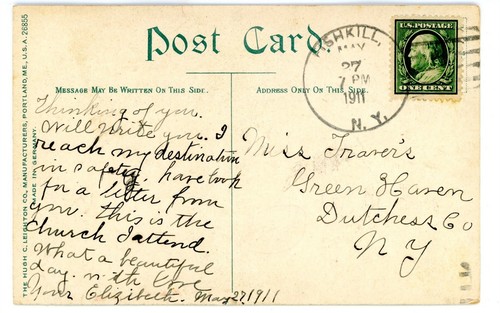 Post Card.
MESSAGE MAY BE WRITTEN ON THIS SIDE.
ADDRESS ONLY ON THIS SIDE.
THE HUGH C. LEIGHTON CO., MANUFACTURERS, PORTLAND, ME., U.S.A. 26855
MADE IN GERMANY.
FISHKILL,
MAY
27
7 PM
1911
N. Y.
U.S. POSTAGE
ONE CENT
Thinking of you.
Will write you. I
reach my destination
in safety. have took
for a letter from
you. this is the
Church I attend.
What a beautiful
day. with love
Your Elizibeth. May 27, 1911
Miss Traver's
Green Haven
Dutchess Co
N Y